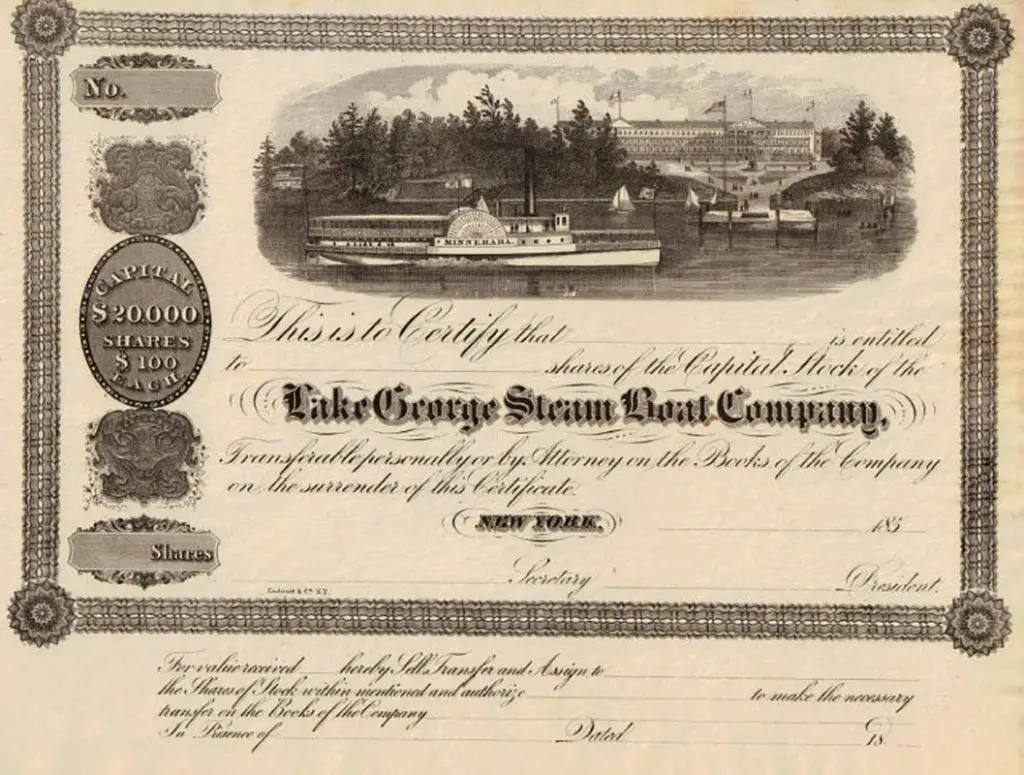 No.
MINNEHAHA.
CAPITAL
$20.000
SHARES
$100
EACH
This is to Certify that is entitled
to shares of the Capital Stock of the
Lake George Steam Boat Company,
Transferable personally or by Attorney on the Books of the Company
on the surrender of this Certificate.
NEW YORK, 185
Shares
Secretary President.
Endicott & Co. N.Y.
For value received hereby Sell Transfer and Assign to
the Shares of Stock within mentioned and authorize to make the necessary
transfer on the Books of the Company
In Presence of Dated 18